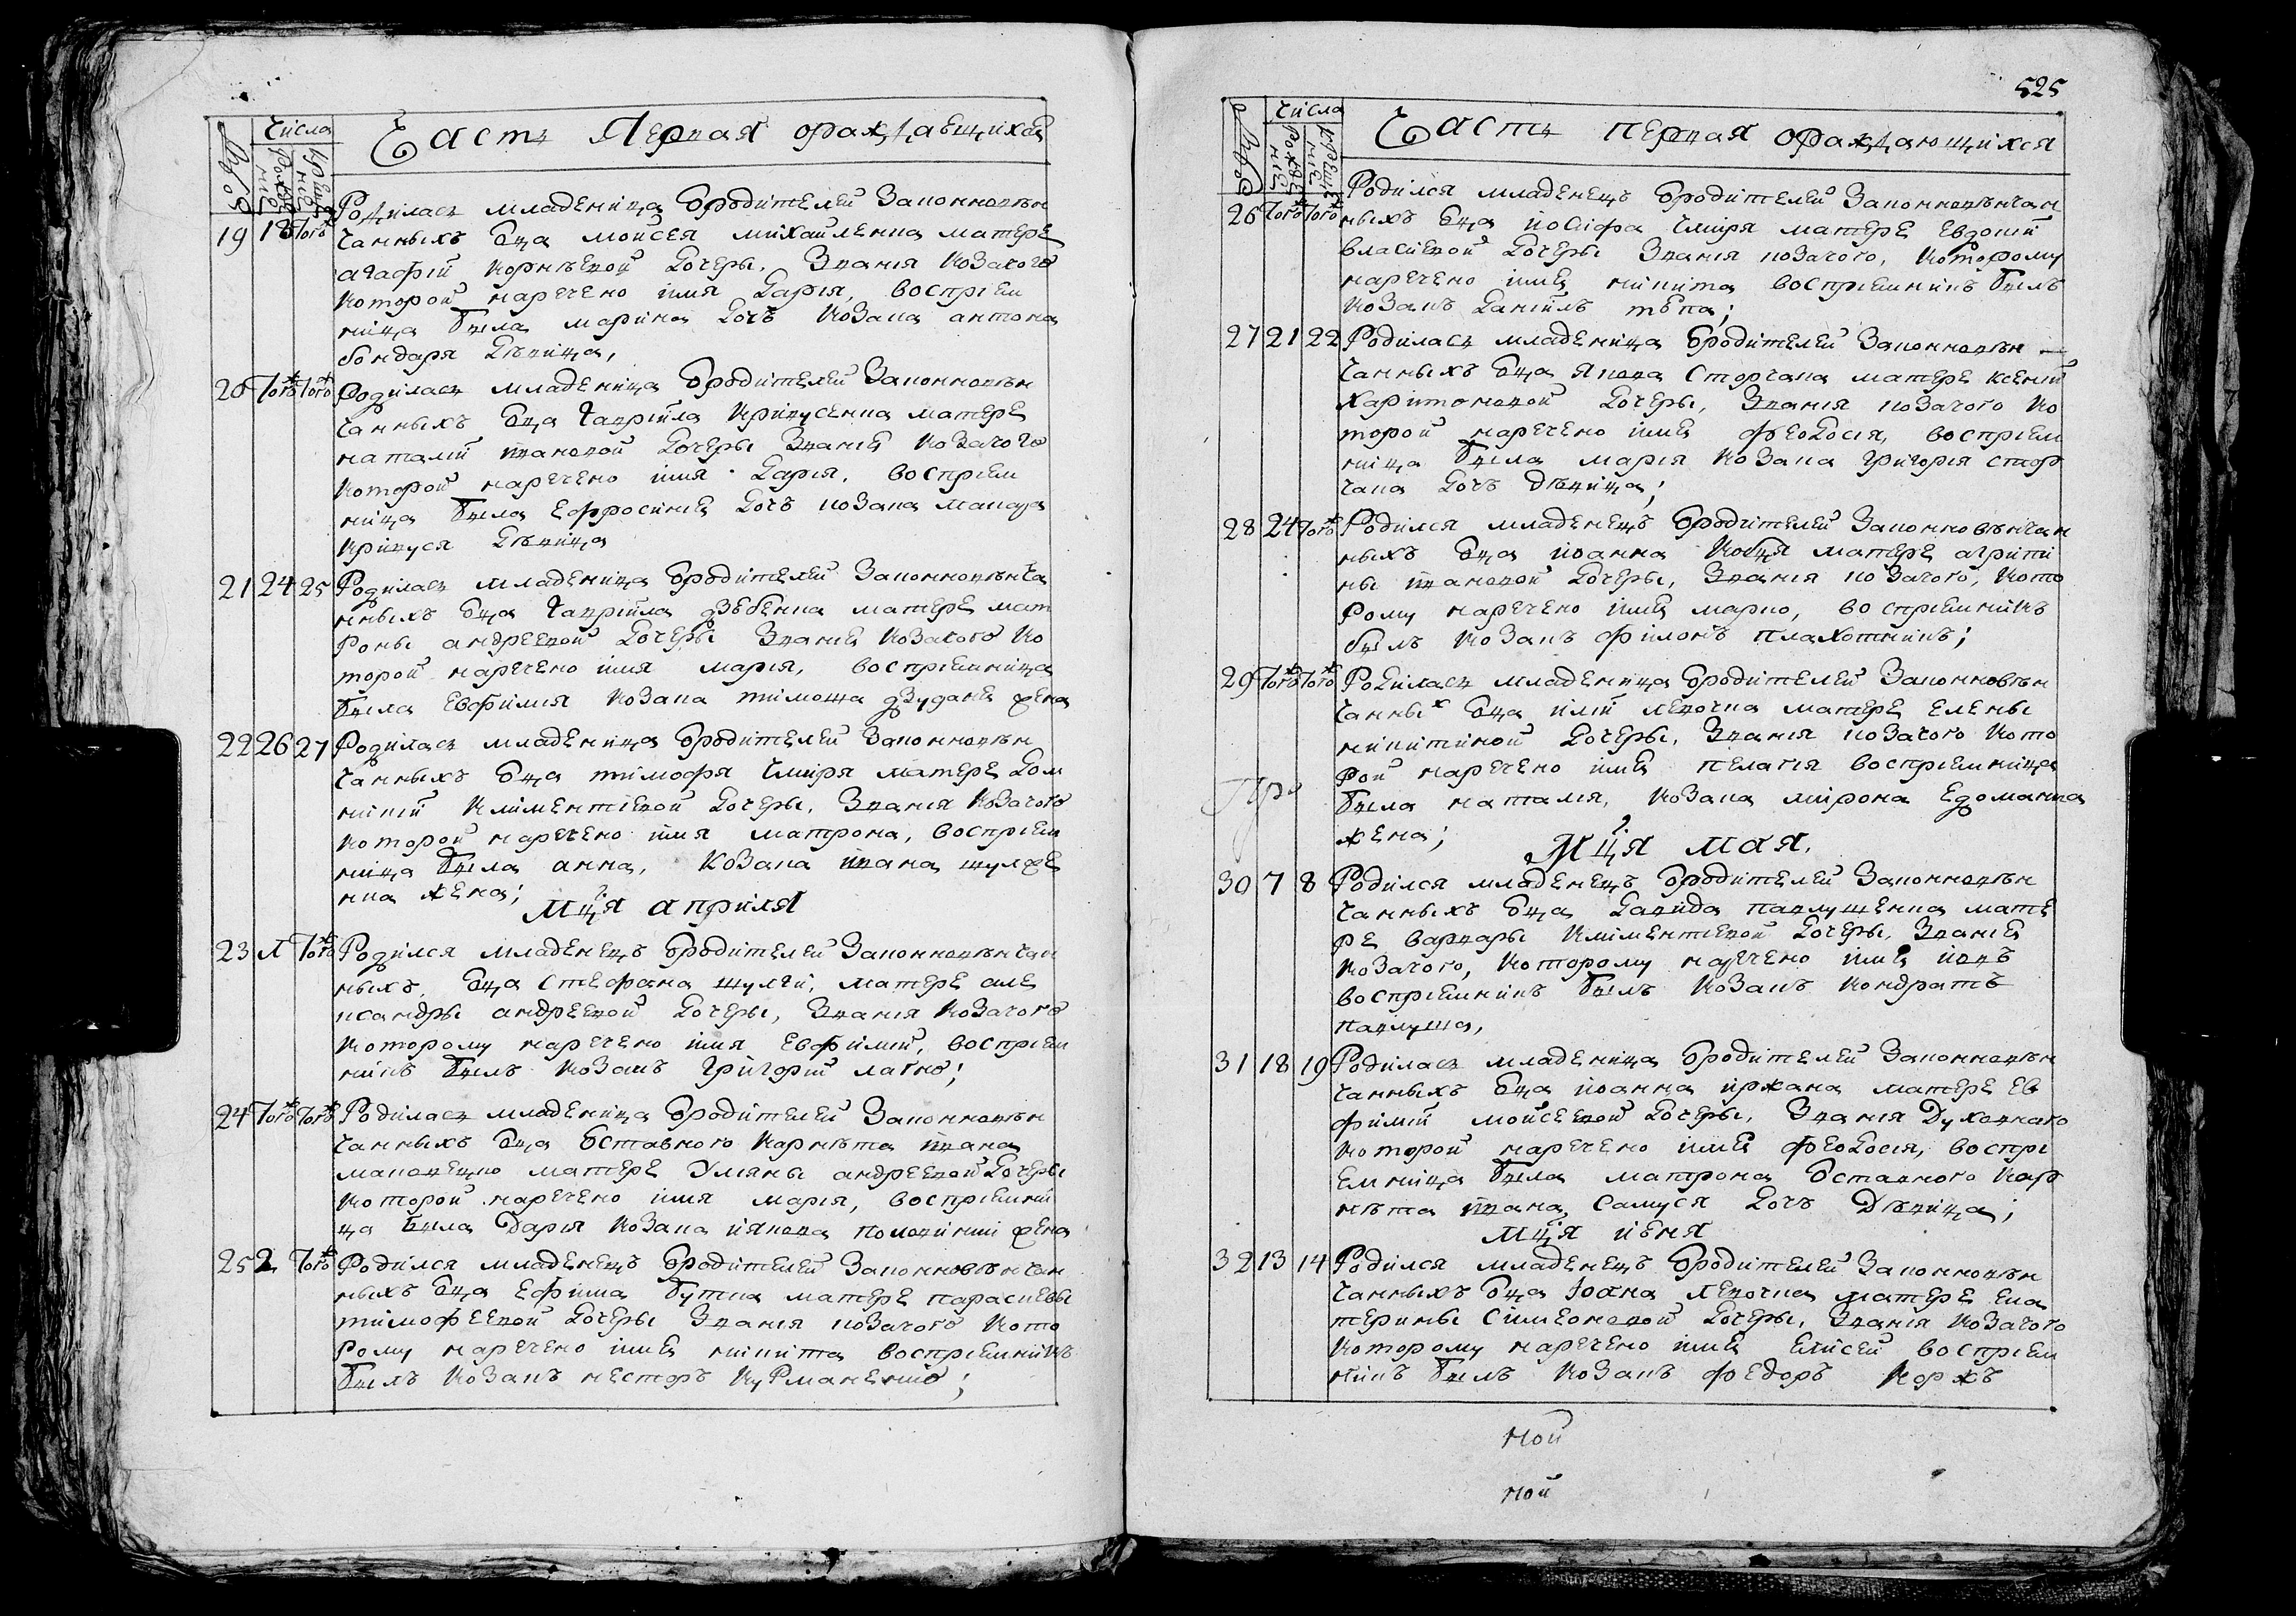 Часть Первая ораждавшихся
Числа
19 18 Тогож Родилась младеница ѿродителей Законновѣн
чанныхъ ѿца моисея михайленка матере
агафіи корнѣевой дочеры, Званія козачого
которой наречено имя дарія, воспріем
ница была марина дочь козака антона
бондаря дѣвица,
20 Тогож Тогож Родилась младеница ѿродителей Законновѣн
чанныхъ ѿца гавріила кривусенка матере
наталіи ивановой дочеры Званія козачого
которой наречено имя дарія, воспріем
ница была ефросинія дочь козака макара
кривуся дѣвица
21 24 25 Родилась младеница ѿродителей Законновѣнча
нныхъ ѿца гавріила дзебенка матере мат
роны андреевой дочеры Званія козачого ко
торой наречено имя марія, воспріемница
была евфимія козака тимоша жена
22 26 27 Родилась младеница ѿродителей Законновѣн
чанныхъ ѿца тимофя чмиря матере дом
никіи климентіевой дочеры, Званія козачого
которой наречено имя матрона, воспріем
ница была анна, козака ивана шулже
нка жена;
Мця априля
23 Л Тогож Родился младенецъ ѿродителей Законновѣнчан
ныхъ ѿца стефана шулги, матере але
ксандры андреевой дочеры, Званія козачого
которому наречено имя евфимій, воспріем
никъ былъ козакъ григорій лагно;
24 Тогож Тогож Родилась младеница ѿродителей Законновѣн
чанныхъ ѿца ѿставного карнѣта ивана
маковецко матере Уляны андреевой дочеры
которой наречено имя марія, воспріемни
ца была Дарія козака якова жена
25 2 Тогож Родился младенецъ ѿродителей Законновѣнчан
ныхъ ѿца ефима бутка матере параскевы
тимофеевой дочеры Званія козачого кото
рому наречено имя никита воспріемникъ
былъ козакъ несторъ курманенко;
525
Часть первая ораждающихся
Числа
26 Тогож Тогож Родился младенецъ ѿродителей Законновѣнчан
ныхъ ѿца иосифа чмиря матере евдокіи
власіевой дочеры Званія козачого, которому
наречено имя никита воспріемникъ былъ
козакъ даніилъ тѣпа;
27 21 22 Родилась младеница ѿродителей Законновѣн
чанныхъ ѿца якова сторчака матере ксеніи
харитоновой дочеры, Званія козачого ко
торой наречено имя феодосія, воспріем
ница была марія козака григорія стор
чака дочь дѣвица;
28 24 Тогож Родился младенецъ ѿродителей Законновѣнчан
ныхъ ѿца иоанна кобця матере агрипи
ны ивановой дочеры, Званія козачого, кото
рому наречено имя марко, воспріемникъ
былъ козакъ филонъ плахотникъ;
29 Тогож Тогож Родилась младеница ѿродителей Законновѣн
чанных ѿца иліи левочка матере елены
никитиной дочеры, Званія козачого кото
рой наречено имя пелагія воспріемница
При
была наталія, козака мирона едоманка
жена;
Мця мая.
30 7 8 Родился младенецъ ѿродителей Законновѣн
чанныхъ ѿца давида павлушенка мате
ре варвары климентіевой дочеры, Званія
козачого, которому наречено имя иовъ
воспріемникъ былъ козакъ кондратъ
павлуша,
31 18 19 Родилась младеница ѿродителей Законновѣн
чанныхъ ѿца иоанна иржака матере ев
фиміи моисеевой дочеры, Званія Духовнаго
которой наречено имя феодосія, воспрі
емница была матрона ѿставного кар
нѣта ивана самуся дочь Дѣвица;
Мця июня
32 13 14 Родился младенецъ ѿродителей Законновѣн
чанныхъ ѿца Іоана левочка матере ека
терины симеоновой дочеры, Званія козачого
которому наречено имя елисей воспріем
никъ былъ козакъ федоръ коржъ
кой
кой